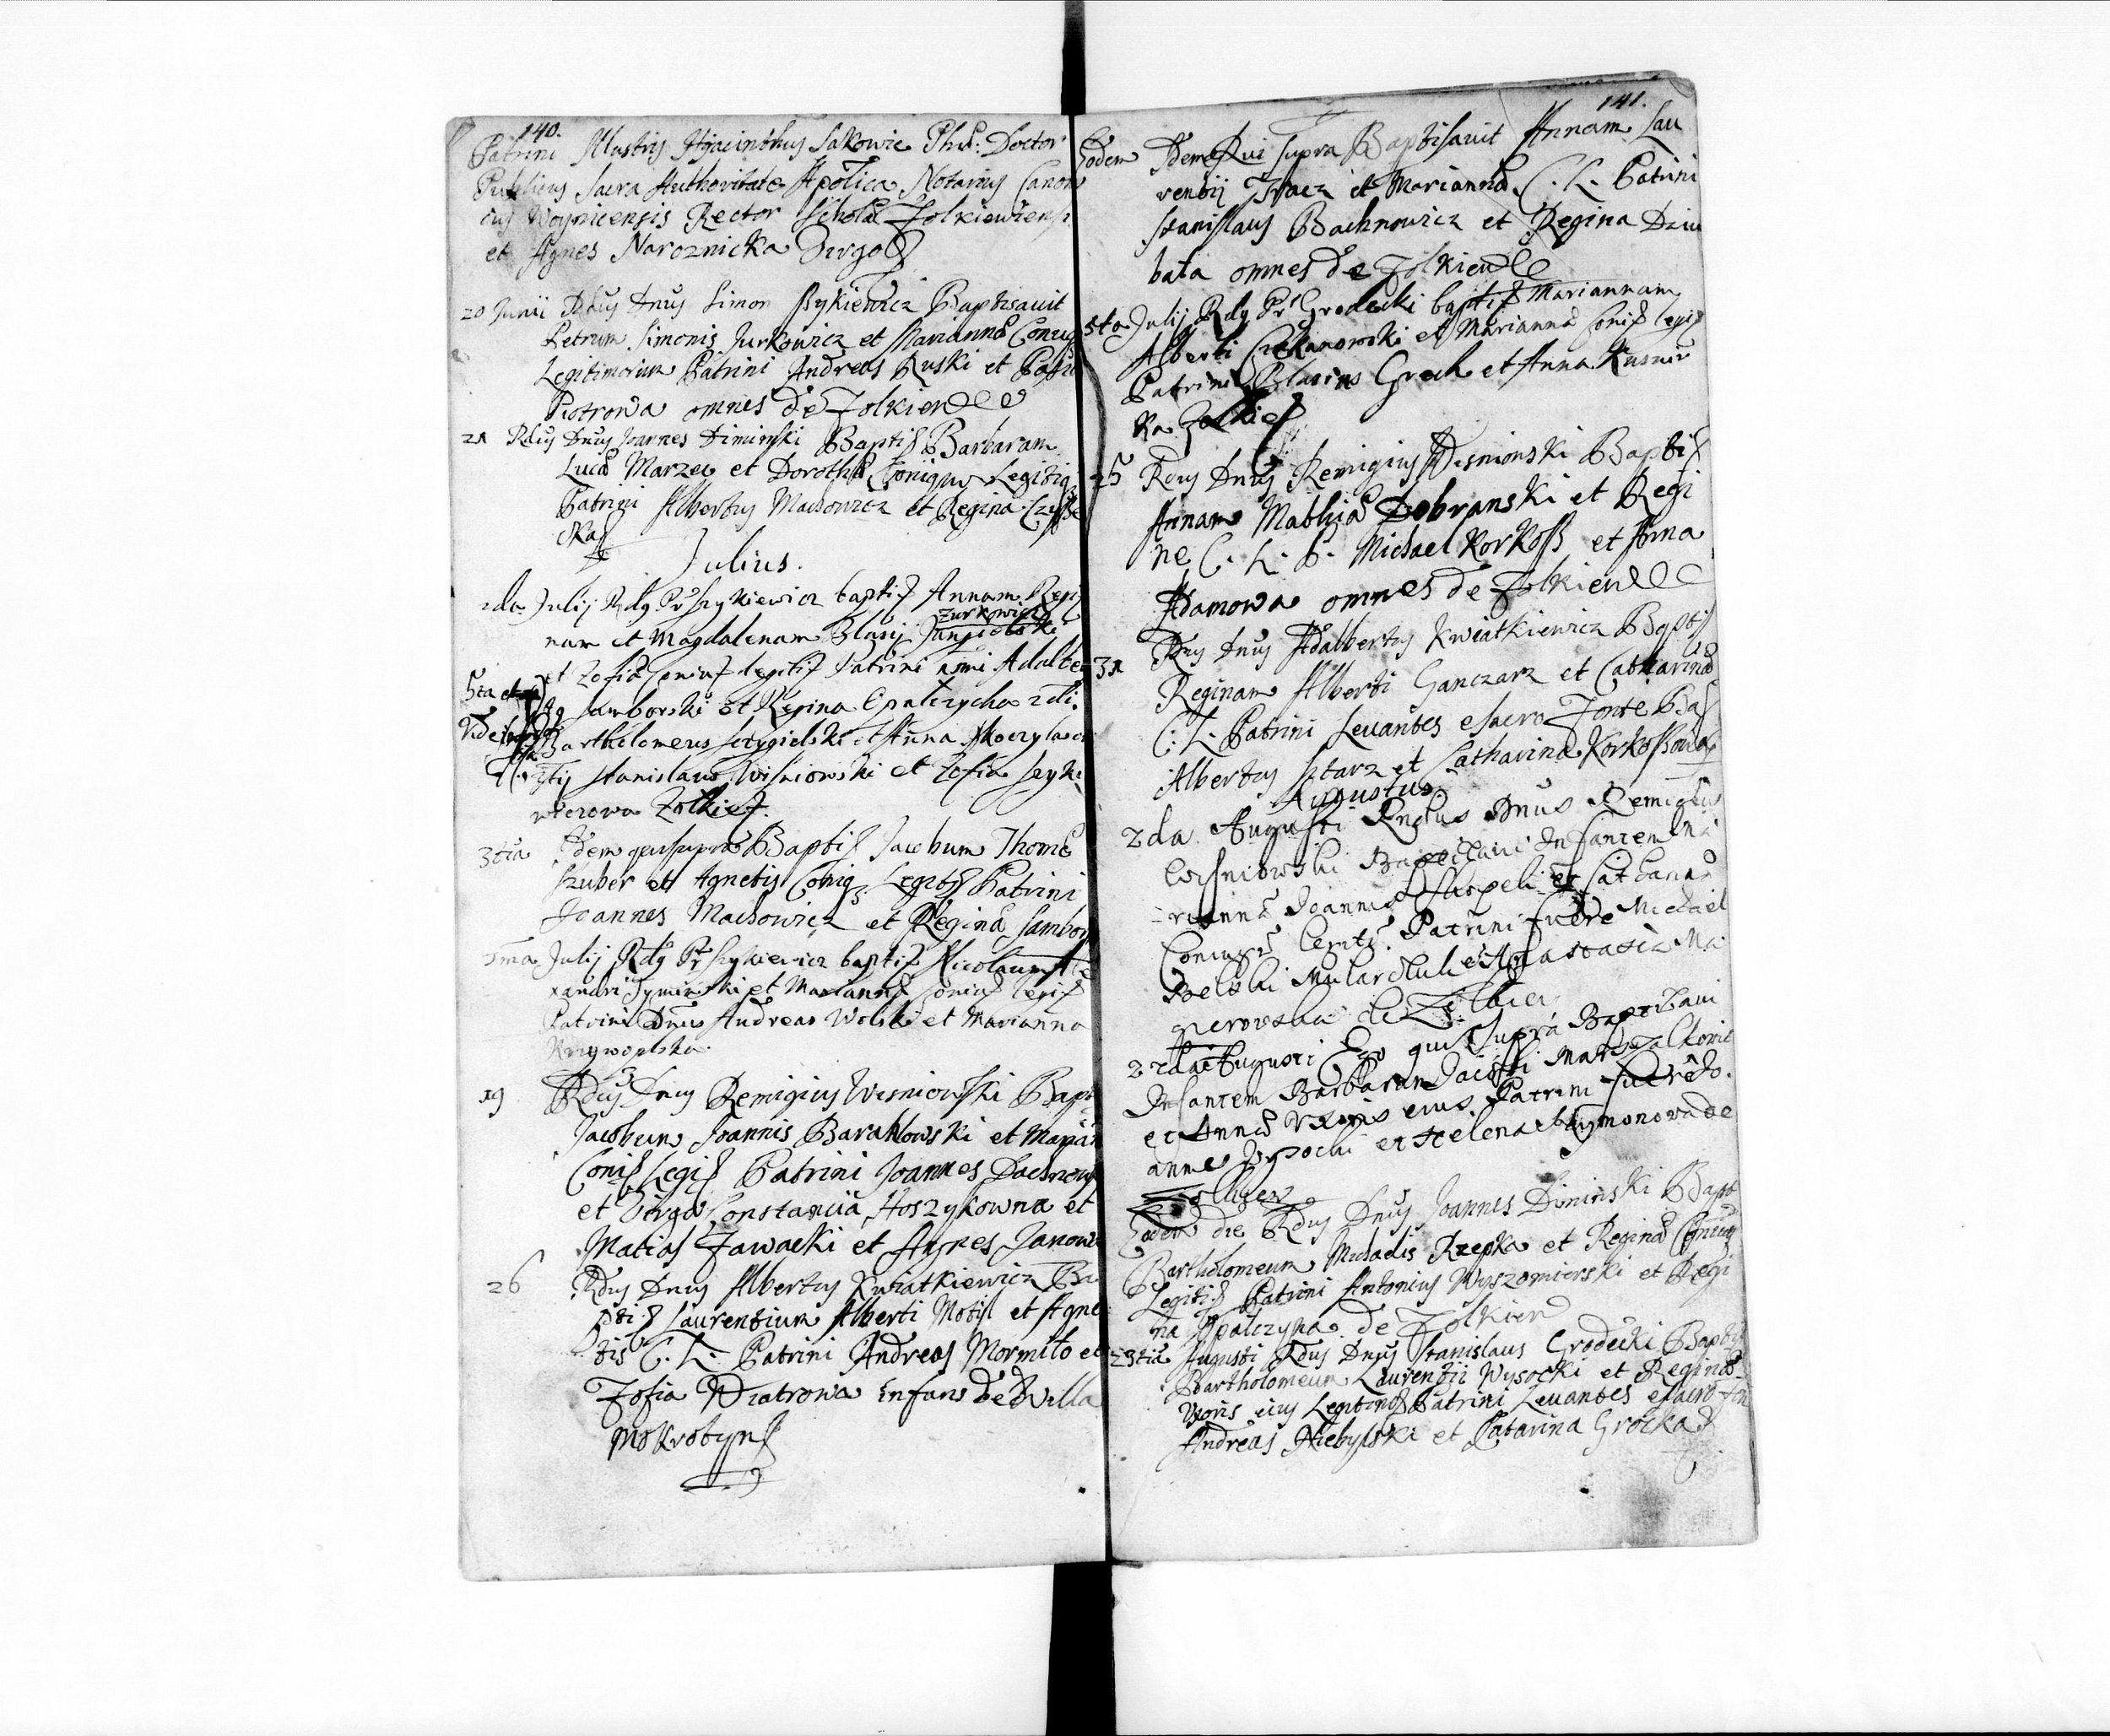 140.
Patrini Illustris Hyacinthus Sakowic Phil: Doctor
Publicus Sacra Authoritate Apolica Notarius Canoni
cus Woynicensis Rector Scholæ Zolkiewiens
et Agnes Naroznicka Virgo
20 Junii Rdus Dnus Simon Sykiewicz Baptisauit
Petrum Simonis Jurkowicz et Mariannæ Coniug
Legitimorum Patrini Andreas Ruski et
Piotrowa omnes de Zolkiew
21 Rdus Dnus Joannes Diminski Baptis Barbaram
Lucæ Marzec et Dorothæ Conigu Legitig
Patrini Albertus Machowicz et Regina
cka
Julius.
2da Julij Rdg Pr Szykiewicz baptis Annam Regi
zurkowicz
nam et Magdalenam Blasij
et Zofiæ Coniu legitis Patrini Adalber
5ta
Samborski et Regina Opalczycha 2di.
Vide
Bartholomeus Scrzygielski et Anna
3tij Stanislaus Wisniowski et Zofia Seyke
wierowa Zolkies.
3tia Idem qui supra Baptis Jacobum Thomæ
Szuber et Agnetis Conig Legits Patrini
Joannes Machowicz et Regina Sambor
5ma Julij Rdg Pr Szykiewicz baptis Nicolaum Ale
xandri Dyminski et Mariannæ Coniu legis
Patrini Dnus Andreas Wolski et Marianna
Krzywopolska.
19 Rdus Dnus Remigius Wisniowski Bapt
Jacobum Joannis Baranowski et Marian
Conis Legis Patrini Joannes Bachnowi
et Virgo Constancia Hoszykowna et
Matias Zawacki et Agnes Janow
26 Rdus Dnus Albertus Kwiatkiewicz Ba
ptis Laurentium Alberti Motil et Agne
tis C. L. Patrini Andreas Mormilo et
Zofia Wiatrowa infans de Villa
Mokrotyn
141.
Eodem Idem Qui supra Baptisauit Annam Lau
rentij Tracz et Mariannæ C. L. Patrini
Stanislaus Bachnowicz et Regina Dziu
bata omnes de Zolkiew
5ta Julij Rdg Pr Grodecki baptis Mariannam
Alberti Czekanowski et Mariannæ Conis legis
Patrini Blasius Groch et Anna Kusnir
ka Zolkies
25 Rdus Dnus Remigius Wisnionski Baptis
Annam Mathiæ Dobranski et Regi
ne C. L. P. Michael Korkoss et Anna
Adamowa omnes de Zolkiew
31 Rdus Dnus Adalbertus Kwiatkiewicz Baptis
Reginam Alberti Ganczarz et Catharinæ
C. L. Patrini Leuantes e sacro Fonte Bas
Albertus Sztarz et Catharina Korkossowa
Augustus
2da Augusti Rndus Dnus Remigius
Wisniowski Baptisaui Infantem Ma
riannã Joannis Skopeli et Catharinæ
Coniugũ Lemtũ. Patrini fuere Michael
Belski Mularchik et Anastasia Ma
gierowska de Zolkiew
22da Augusti Ego qui supra Baptisaui
Infantem Barbaram Jacobi Marszalkowic
et Annæ Uxoris eius Patrini fuere Jo.
annes Wysocki et Helena Szymonowa de
Zolkiew
Eodem die Rdus Dnus Joannes Diminski Bapt
Bartholomeum Michaelis Rzepka et Reginæ Coniug
Legitis Patrini Antonius Wyszomierski et Regi
na Opalczyna de Zolkiew
23tia Augusti Rdus Dnus Stanislaus Grodecki Baptis
Bartholomeum Laurentii Wysocki et Reginæ
Uxoris eius Legitimæ Patrini Leuantes e sacro fon
Andreas Niebylski et Catarina Grocka